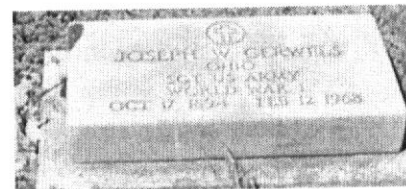 JOSEPH W GERWELS
OHIO
SGT US ARMY
WORLD WAR I
OCT 17 1894 FEB 12 1968